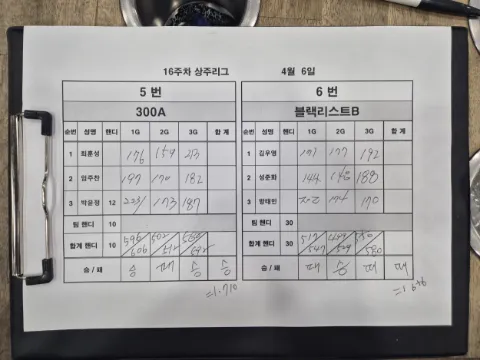 16주차 상주리그 4월 6일
5 번
300A
순번 성명 핸디 1G 2G 3G 합 계
1 최훈성 176 159 213
2 임주찬 197 170 182
3 박윤정 12 223/ 173 187
팀 핸디 10
합계 핸디 10 596/606 502/512 582/592
승 / 패 승 패 승 승
=1.710
6 번
블랙리스트B
순번 성명 핸디 1G 2G 3G 합 계
1 김우영 171 177 192
2 성준화 144 148 188
3 174 170
팀 핸디 30
합계 핸디 30 517/547 499/529 550/580
승 / 패 패 승 패 패